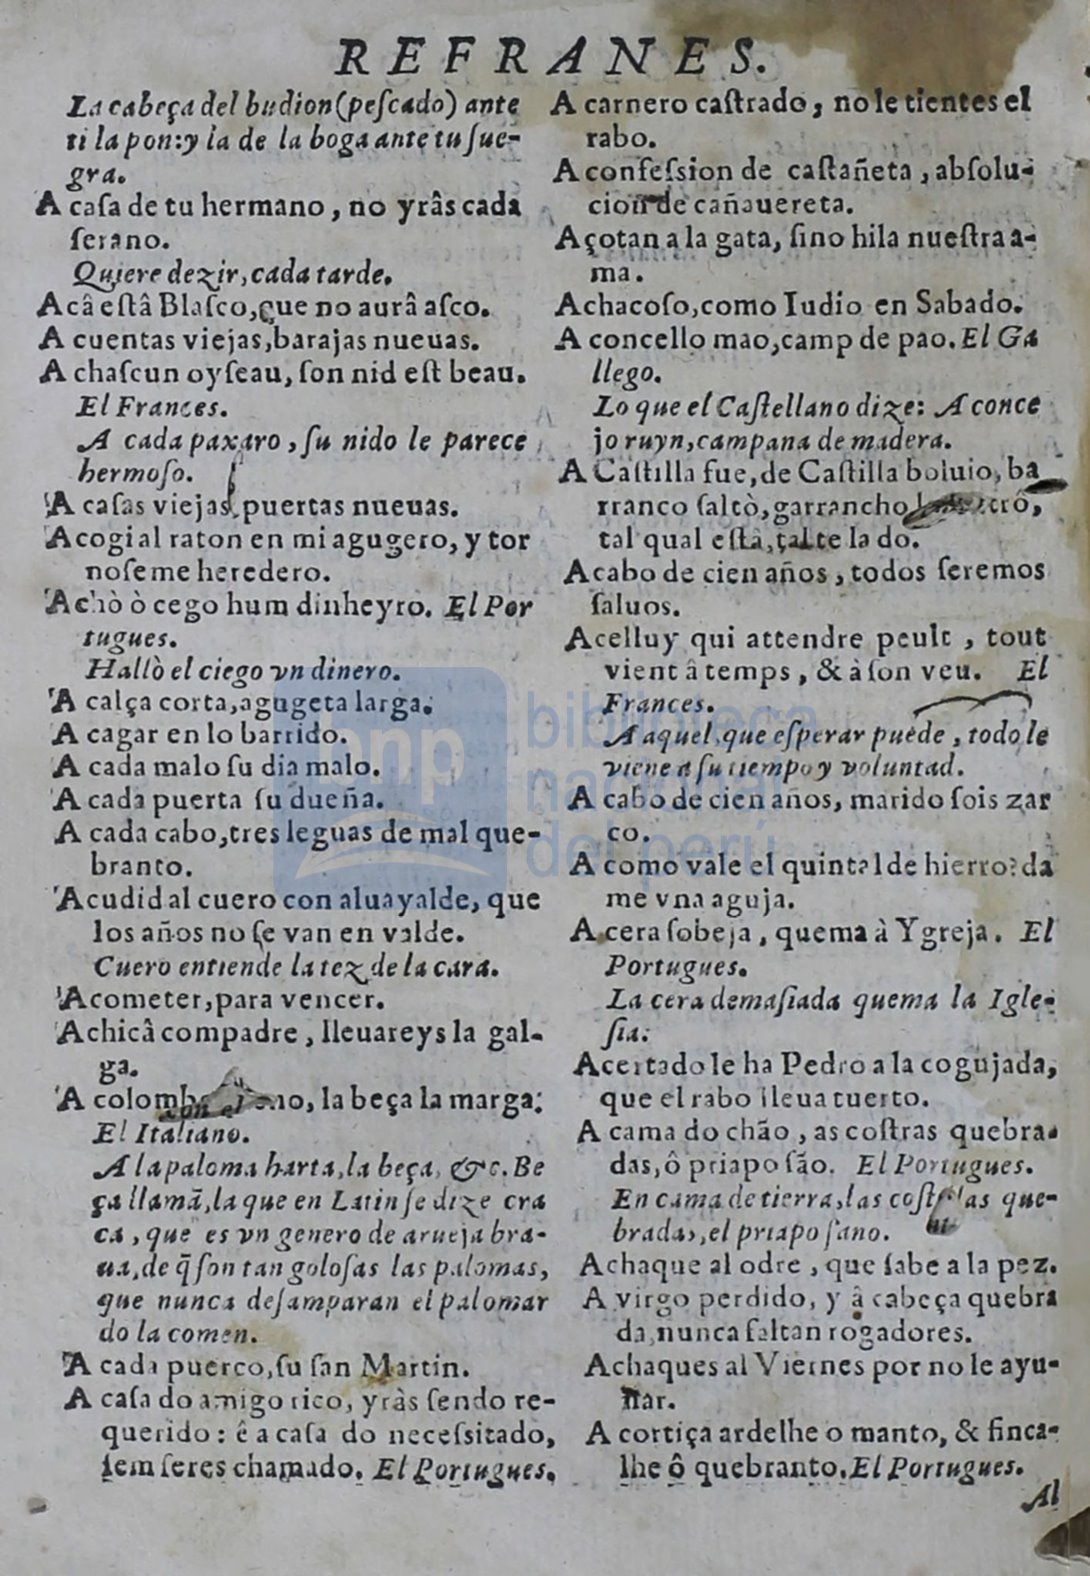 REFRANES.
La cabeça del budion (peſcado) ante
ti la pon: y la de la boga ante tu ſue-
gra.
A caſa de tu hermano, no yrâs cada
ſerano.
Quiere dezir, cada tarde.
Acâ eſtâ Blaſco, que no aurâ aſco.
A cuentas viejas, barajas nueuas.
A chaſcun oyſeau, ſon nid eſt beau.
El Frances.
A cada paxaro, ſu nido le parece
hermoſo.
A caſas viejas puertas nueuas.
Acogi al raton en mi agugero, y tor
noſeme heredero.
Achò ò cego hum dinheyro. El Por
tugues.
Hallò el ciego vn dinero.
A calça corta, agugeta larga.
A cagar en lo barrido.
A cada malo ſu dia malo.
A cada puerta ſu dueña.
A cada cabo, tres leguas de mal que-
branto.
Acudid al cuero con aluayalde, que
los años no ſe van en valde.
Cuero entiende la tez de la cara.
Acometer, para vencer.
Achicâ compadre, lleuareys la gal-
ga.
A colombo la beça la marga:
El Italiano.
A la paloma harta, la beça, &c. Be
ça llamã, la que en Latin ſe dize cra
ca, que es vn genero de arueja bra-
ua, de q̃ ſon tan goloſas las palomas,
que nunca deſamparan el palomar
do la comen.
A cada puerco, ſu ſan Martin.
A caſa do amigo rico, yràs ſendo re-
querido: ê a caſa do neceſsitado,
ſem ſeres chamado. El Portugues.
A carnero caſtrado, no le tientes el
rabo.
A confeſsion de caſtañeta, abſolu-
cion de cañauereta.
Açotan a la gata, ſino hila nueſtra a-
ma.
Achacoſo, como Iudio en Sabado.
A concello mao, camp de pao. El Ga
llego.
Lo que el Caſtellano dize: A conce
jo ruyn, campana de madera.
A Caſtilla fue, de Caſtilla boluio, ba
rranco ſaltò, garrancho
tal qual eſtâ, tal te la do.
Acabo de cien años, todos ſeremos
ſaluos.
Acelluy qui attendre peult, tout
vient â temps, & à ſon veu. El
Frances.
A aquel, que eſperar puede, todo le
viene a ſu tiempo y voluntad.
A cabo de cien años, marido ſois zar
co.
A como vale el quintal de hierro? da
me vna aguja.
A cera ſobeja, quema à Ygreja. El
Portugues.
La cera demaſiada quema la Igle-
ſia.
Acertado le ha Pedro a la cogujada,
que el rabo lleua tuerto.
A cama do chão, as coſtras quebra-
das, ô priapo ſão. El Portugues.
En cama de tierra, las que-
bradas, el priapo ſano.
Achaque al odre, que ſabe a la pez.
A virgo perdido, y â cabeça quebra
da, nunca faltan rogadores.
Achaques al Viernes por no le ayu-
nar.
A cortiça ardelhe o manto, & finca-
lhe ô quebranto. El Portugues.
Al
bnp
biblioteca
nacional
del perú